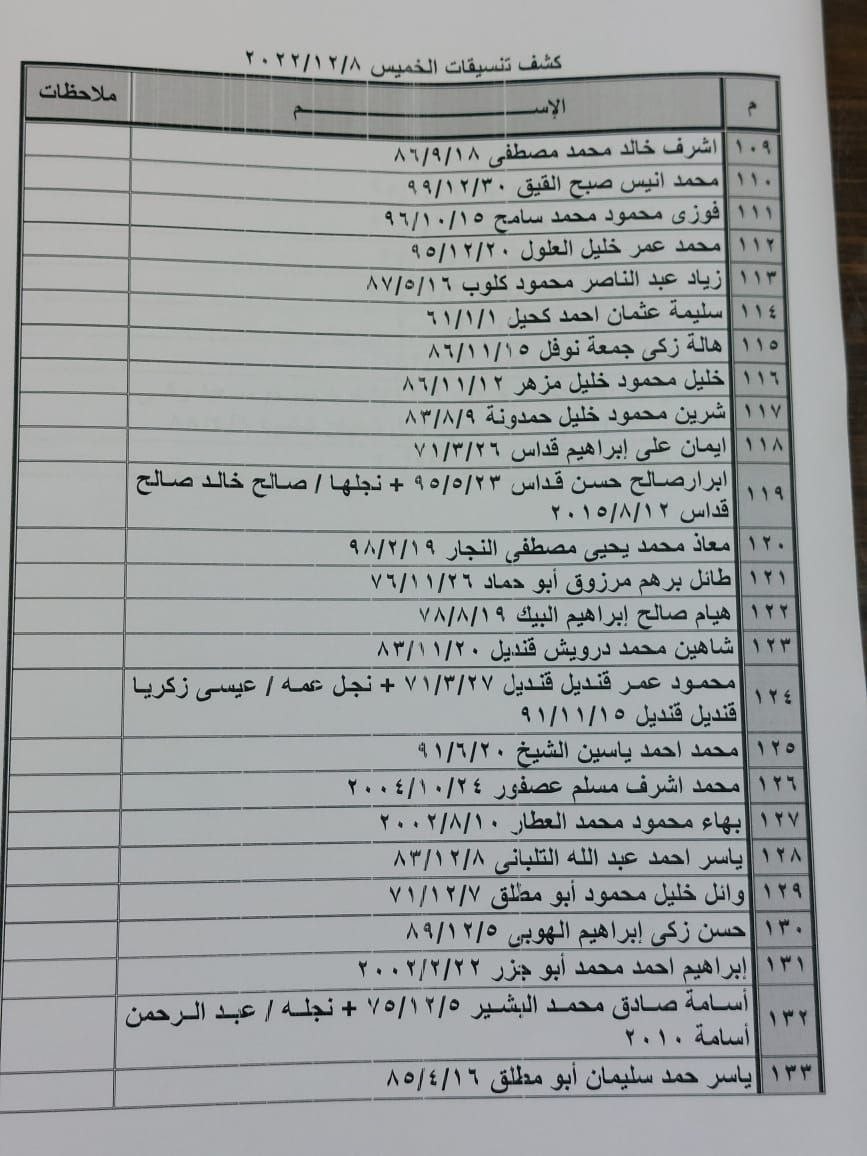 كشف تنسيقات الخميس ٢٠٢٢/١٢/٨
م الإســـــــــــم ملاحظات
١٠٩ اشرف خالد محمد مصطفى ٨٦/٩/١٨
١١٠ محمد انيس صبح القيق ٩٩/١٢/٣٠
١١١ فوزى محمود محمد سامح ٩٦/١٠/١٥
١١٢ محمد عمر خليل العلول ٩٥/١٢/٢٠
١١٣ زياد عبد الناصر محمود كلوب ٨٧/٥/١٦
١١٤ سليمة عثمان احمد كحيل ٦١/١/١
١١٥ هالة زكى جمعة نوفل ٨٦/١١/١٥
١١٦ خليل محمود خليل مزهر ٨٦/١١/١٢
١١٧ شرين محمود خليل حمدونة ٨٣/٨/٩
١١٨ ايمان على إبراهيم قداس ٧١/٣/٢٦
١١٩ ابرارصالح حسن قداس ٩٥/٥/٢٣ + نجلها / صالح خالد صالح
قداس ٢٠١٥/٨/١٢
١٢٠ معاذ محمد يحيى مصطفى النجار ٩٨/٢/١٩
١٢١ طائل برهم مرزوق أبو حماد ٧٦/١١/٢٦
١٢٢ هيام صالح إبراهيم البيك ٧٨/٨/١٩
١٢٣ شاهين محمد درويش قنديل ٨٣/١١/٢٠
١٢٤ محمود عمر قنديل قنديل ٧١/٣/٢٧ + نجل عمه / عيسى زكريا
قنديل قنديل ٩١/١١/١٥
١٢٥ محمد احمد ياسين الشيخ ٩١/٦/٢٠
١٢٦ محمد اشرف مسلم عصفور ٢٠٠٤/١٠/٢٤
١٢٧ بهاء محمود محمد العطار ٢٠٠٢/٨/١٠
١٢٨ ياسر احمد عبد الله التلبانى ٨٣/١٢/٨
١٢٩ وائل خليل محمود أبو مطلق ٧١/١٢/٧
١٣٠ حسن زكى إبراهيم الهوبى ٨٩/١٢/٥
١٣١ إبراهيم احمد محمد أبو جزر ٢٠٠٢/٢/٢٢
١٣٢ أسامة صادق محمد البشير ٧٥/١٢/٥ + نجله / عبد الرحمن
أسامة ٢٠١٠
١٣٣ ياسر حمد سليمان أبو مطلق ٨٥/٤/١٦